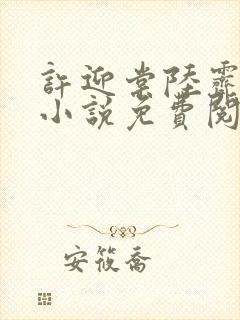 許迎常陸霽
小說免費閱
安筱喬